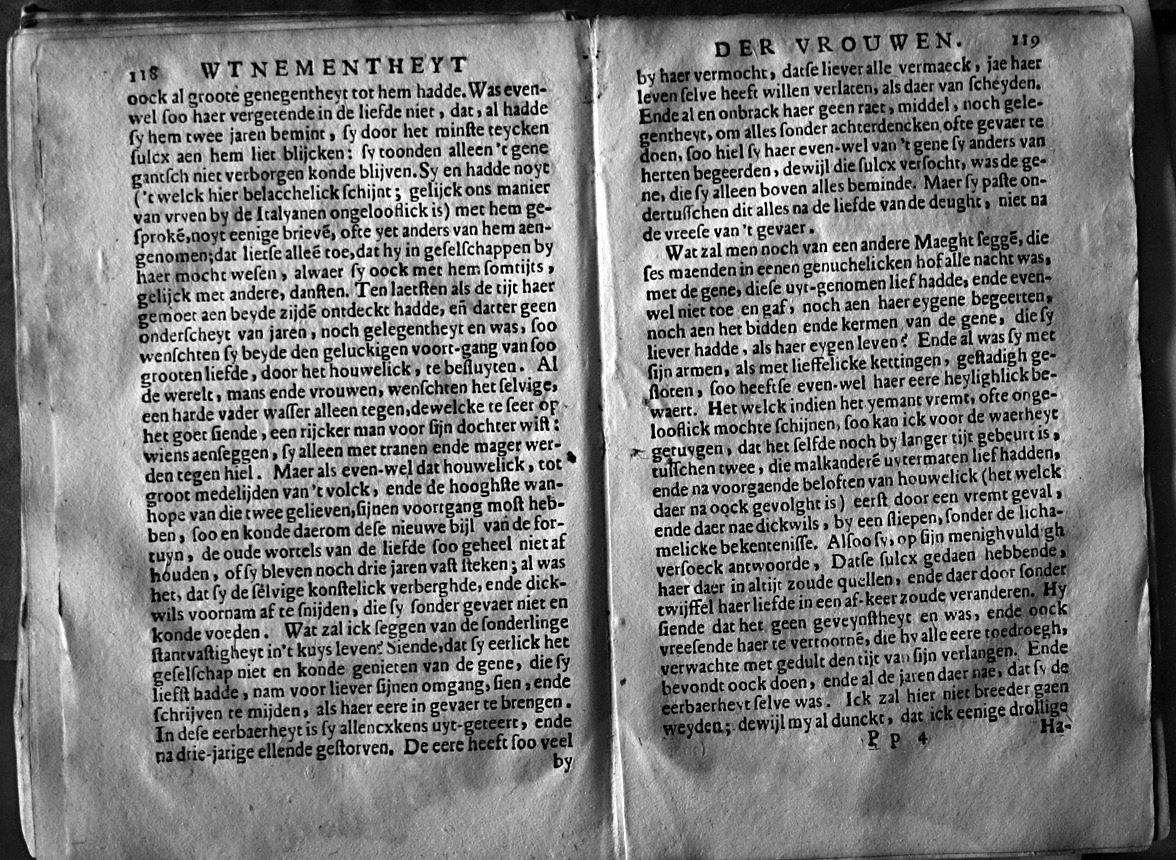 118 WTNEMENTHEYT
oock al groote genegentheyt tot hem hadde. Was even-
wel ſoo haer vergetende in de liefde niet, dat, al hadde
ſy hem twee jaren bemint, ſy door het minſte teycken
ſulcx aen hem liet blijcken: ſy toonden alleen 't gene
gantſch niet verborgen konde blijven. Sy en hadde noyt
('t welck hier belacchelick ſchijnt; gelijck ons manier
van vryen by de Italyanen ongelooflick is) met hem ge-
ſprokē, noyt eenige brievē, ofte yet anders van hem aen-
genomen; dat lietſe alleē toe, dat hy in geſelſchappen by
haer mocht weſen, alwaer ſy oock met hem ſomtijts,
gelijck met andere, danſten. Ten laetſten als de tijt haer
gemoet aen beyde zijdē ontdeckt hadde, eñ datter geen
onderſcheyt van jaren, noch gelegentheyt en was, ſoo
wenſchten ſy beyde den geluckigen voort-gang van ſoo
grooten liefde, door het houwelick, te beſluyten. Al
de werelt, mans ende vrouwen, wenſchten het ſelvige,
een harde vader waſſer alleen tegen, dewelcke te ſeer op
het goet ſiende, een rijcker man voor ſijn dochter wiſt:
wiens aenſeggen, ſy alleen met tranen ende mager wer-
den tegen hiel. Maer als even-wel dat houwelick, tot
groot medelijden van 't volck, ende de hooghſte wan-
hope van die twee gelieven, ſijnen voortgang moſt heb-
ben, ſoo en konde daerom deſe nieuwe bijl van de for-
tuyn, de oude wortels van de liefde ſoo geheel niet af
houden, of ſy bleven noch drie jaren vaſt ſteken; al was
het, dat ſy de ſelvige konſtelick verberghde, ende dick-
wils voornam af te ſnijden, die ſy ſonder gevaer niet en
konde voeden. Wat zal ick ſeggen van de ſonderlinge
ſtantvaſtigheyt in't kuys leven? Siende, dat ſy eerlick het
geſelſchap niet en konde genieten van de gene, die ſy
liefſt hadde, nam voor liever ſijnen omgang, ſien, ende
ſchrijven te mijden, als haer eere in gevaer te brengen.
In deſe eerbaerheyt is ſy allencxkens uyt-geteert, ende
na drie-jarige ellende geſtorven. De eere heeft ſoo veel
by
DER VROUWEN. 119
by haer vermocht, datſe liever alle vermaeck, jae haer
leven ſelve heeft willen verlaten, als daer van ſcheyden.
Ende al en onbrack haer geen raet, middel, noch gele-
gentheyt, om alles ſonder achterdencken ofte gevaer te
doen, ſoo hiel ſy haer even-wel van 't gene ſy anders van
herten begeerden, dewijl die ſulcx verſocht, was de ge-
ne, die ſy alleen boven alles beminde. Maer ſy paſte on-
dertuſſchen dit alles na de liefde van de deught, niet na
de vreeſe van 't gevaer.
Wat zal men noch van een andere Maeght ſeggē, die
ſes maenden in eenen genuchelicken hof alle nacht was,
met de gene, dieſe uyt-genomen lief hadde, ende even-
wel niet toe en gaf, noch aen haer eygene begeerten,
noch aen het bidden ende kermen van de gene, die ſy
liever hadde, als haer eygen leven? Ende al was ſy met
ſijn armen, als met lieffelicke kettingen, geſtadigh ge-
ſloten, ſoo heeftſe even-wel haer eere heylighlick be-
waert. Het welck indien het yemant vremt, ofte onge-
looflick mochte ſchijnen, ſoo kan ick voor de waerheyt
getuygen, dat het ſelfde noch by langer tijt gebeurt is,
tuſſchen twee, die malkanderē uytermaten lief hadden,
ende na voorgaende beloften van houwelick (het welck
daer na oock gevolght is) eerſt door een vremt geval,
ende daer nae dickwils, by een ſliepen, ſonder de licha-
melicke bekenteniſſe. Alſoo ſy, op ſijn menighvuldigh
verſoeck antwoorde, Datſe ſulcx gedaen hebbende,
haer daer in altijt zoude quellen, ende daer door ſonder
twijffel haer liefde in een af-keer zoude veranderen. Hy
ſiende dat het geen geveynſtheyt en was, ende oock
vreeſende haer te vertoornē, die hy alle eere toedroegh,
verwachte met gedult den tijt van ſijn verlangen. Ende
bevondt oock doen, ende al de jaren daer nae, dat ſy de
eerbaerheyt ſelve was. Ick zal hier niet breeder gaen
weyden; dewijl my al dunckt, dat ick eenige drollige
P p 4 Ha-